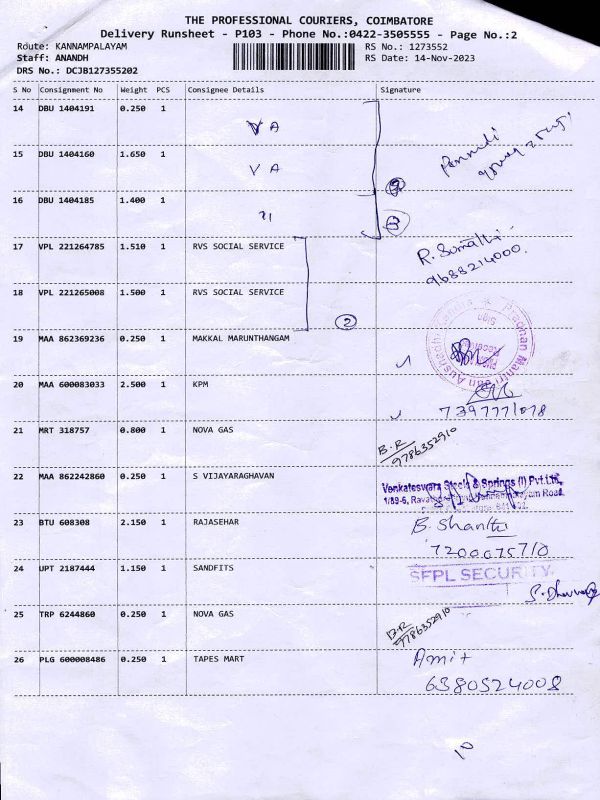 THE PROFESSIONAL COURIERS, COIMBATORE
Delivery Runsheet - P103 - Phone No.:0422-3505555 - Page No.:2
Route: KANNAMPALAYAM RS No.: 1273552
Staff: ANANDH RS Date: 14-Nov-2023
DRS No.: DCJB127355202
S No Consignment No Weight PCS Consignee Details Signature
14 DBU 1404191 0.250 1 V A
15 DBU 1404160 1.650 1 V A
16 DBU 1404185 1.400 1 "
3
17 VPL 221264785 1.510 1 RVS SOCIAL SERVICE R. Sumathi
9688214000
18 VPL 221265008 1.500 1 RVS SOCIAL SERVICE
2
19 MAA 862369236 0.250 1 MAKKAL MARUNTHANGAM
20 MAA 600083033 2.500 1 KPM
7397771078
21 MRT 318757 0.800 1 NOVA GAS B.R
9786352910
22 MAA 862242860 0.250 1 S VIJAYARAGHAVAN Venkateswara Steels & Springs (I) Pvt.Ltd.,
23 BTU 608308 2.150 1 RAJASEHAR B. Shanthi
7200075710
24 UPT 2187444 1.150 1 SANDFITS SFPL SECURITY
25 TRP 6244860 0.250 1 NOVA GAS B.R
9786352910
26 PLG 600008486 0.250 1 TAPES MART Amit
6380524008
10